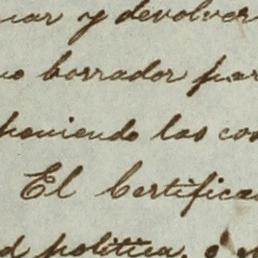 uar y devolver
no borrador par
poniendo las cos
El Certifica
d política, o